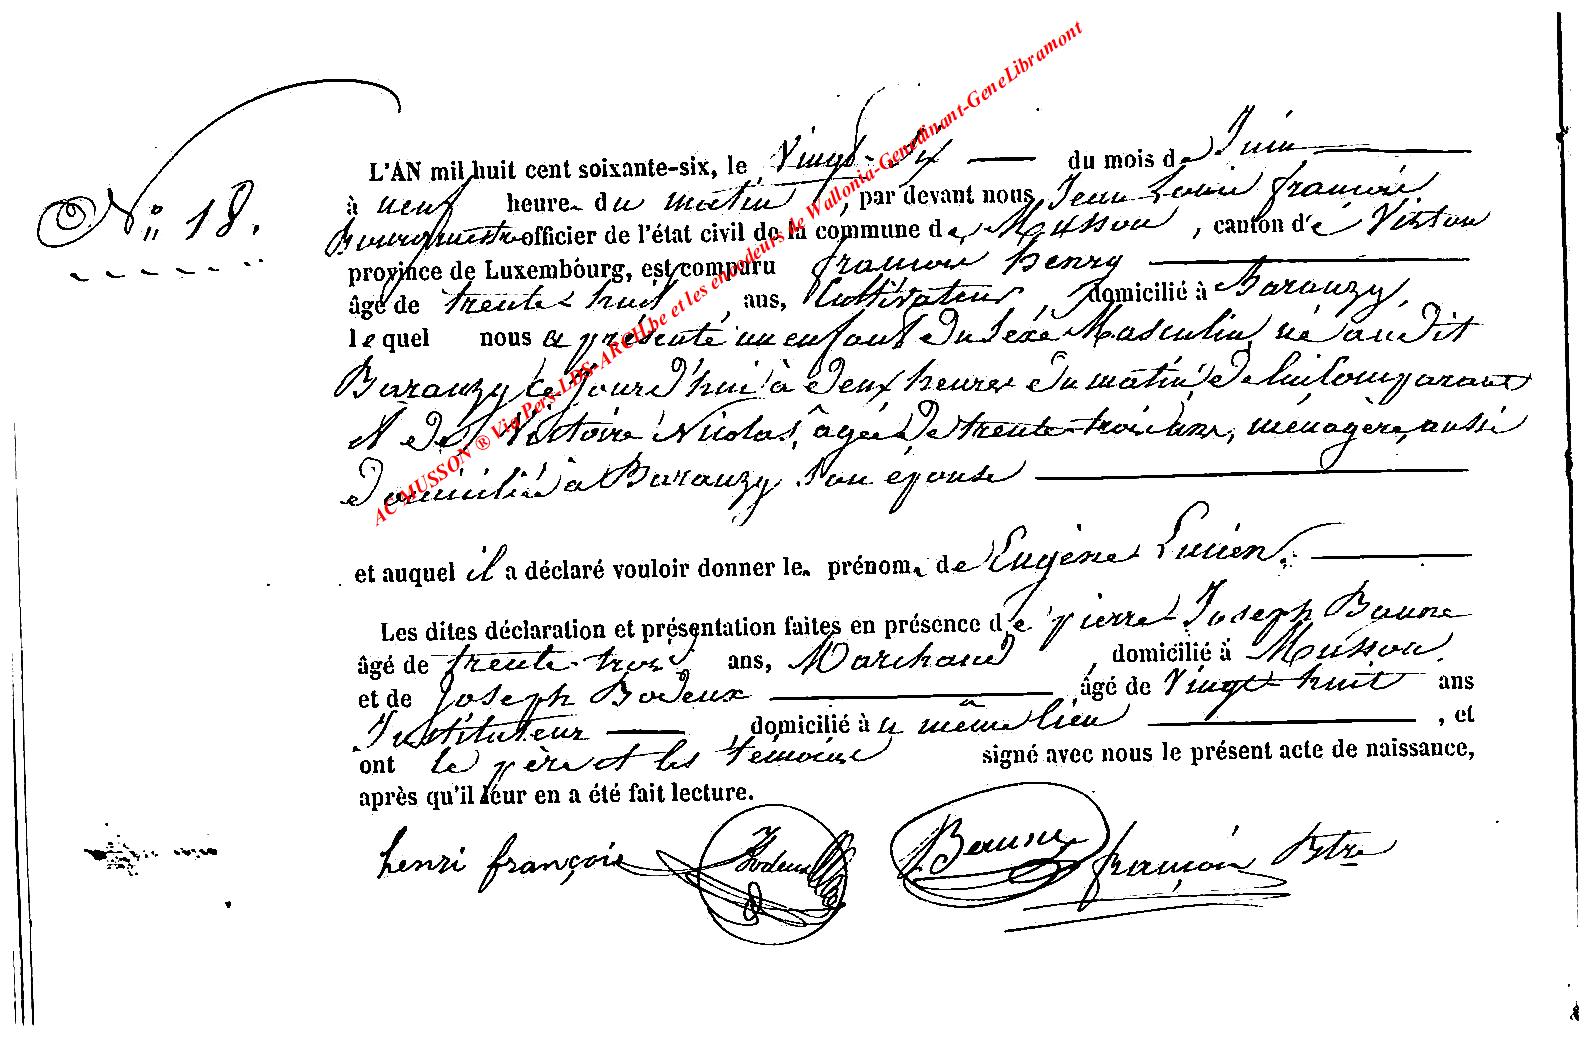 N° 18.
L'AN mil huit cent soixante-six, le Vingt-six du mois de Juin
à neuf heure du matin, par devant nous Jean Louis françois
Bourgmestre officier de l'état civil de la commune de Musson, canton de Virton
province de Luxembourg, est comparu françois henry
âgé de trente-huit ans, Cultivateur, domicilié à Baranzy,
lequel nous a présenté un enfant du Sexe Masculin, né au dit
Baranzy ce jourd'hui à deux heures du matin, de lui Comparant
et de Victoire Nicolas, âgée de trente-trois ans, ménagère, aussi
domiciliée à Baranzy son épouse
et auquel il a déclaré vouloir donner le prénom de Eugène Lucien.
Les dites déclaration et présentation faites en présence de pierre Joseph Baune
âgé de trente-trois ans, Marchand, domicilié à Musson.
et de Joseph Bodeux âgé de Vingt-huit ans
Instituteur, domicilié à u même lieu, et
ont le père et les témoins signé avec nous le présent acte de naissance,
après qu'il leur en a été fait lecture.
henri françois J Bodeux Baune françois Bstre
AC MUSSON ® Via Pers-LDS-ARCH.be et les encodeurs de Wallonia-Genedinant-GeneLibramont